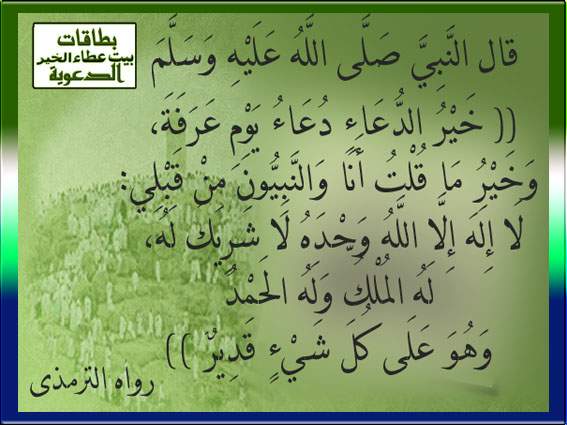 بطاقات
بيت عطاء الخير
الدعوية
قال النَّبِيَّ صَلَّى اللَّهُ عَلَيْهِ وَسَلَّمَ
(( خَيْرُ الدُّعَاءِ دُعَاءُ يَوْمِ عَرَفَةَ،
وَخَيْرُ مَا قُلْتُ أَنَا وَالنَّبِيُّونَ مِنْ قَبْلِي:
لَا إِلَهَ إِلَّا اللَّهُ وَحْدَهُ لَا شَرِيكَ لَهُ،
لَهُ الْمُلْكُ وَلَهُ الْحَمْدُ
وَهُوَ عَلَى كُلِّ شَيْءٍ قَدِيرٌ ))
رواه الترمذى